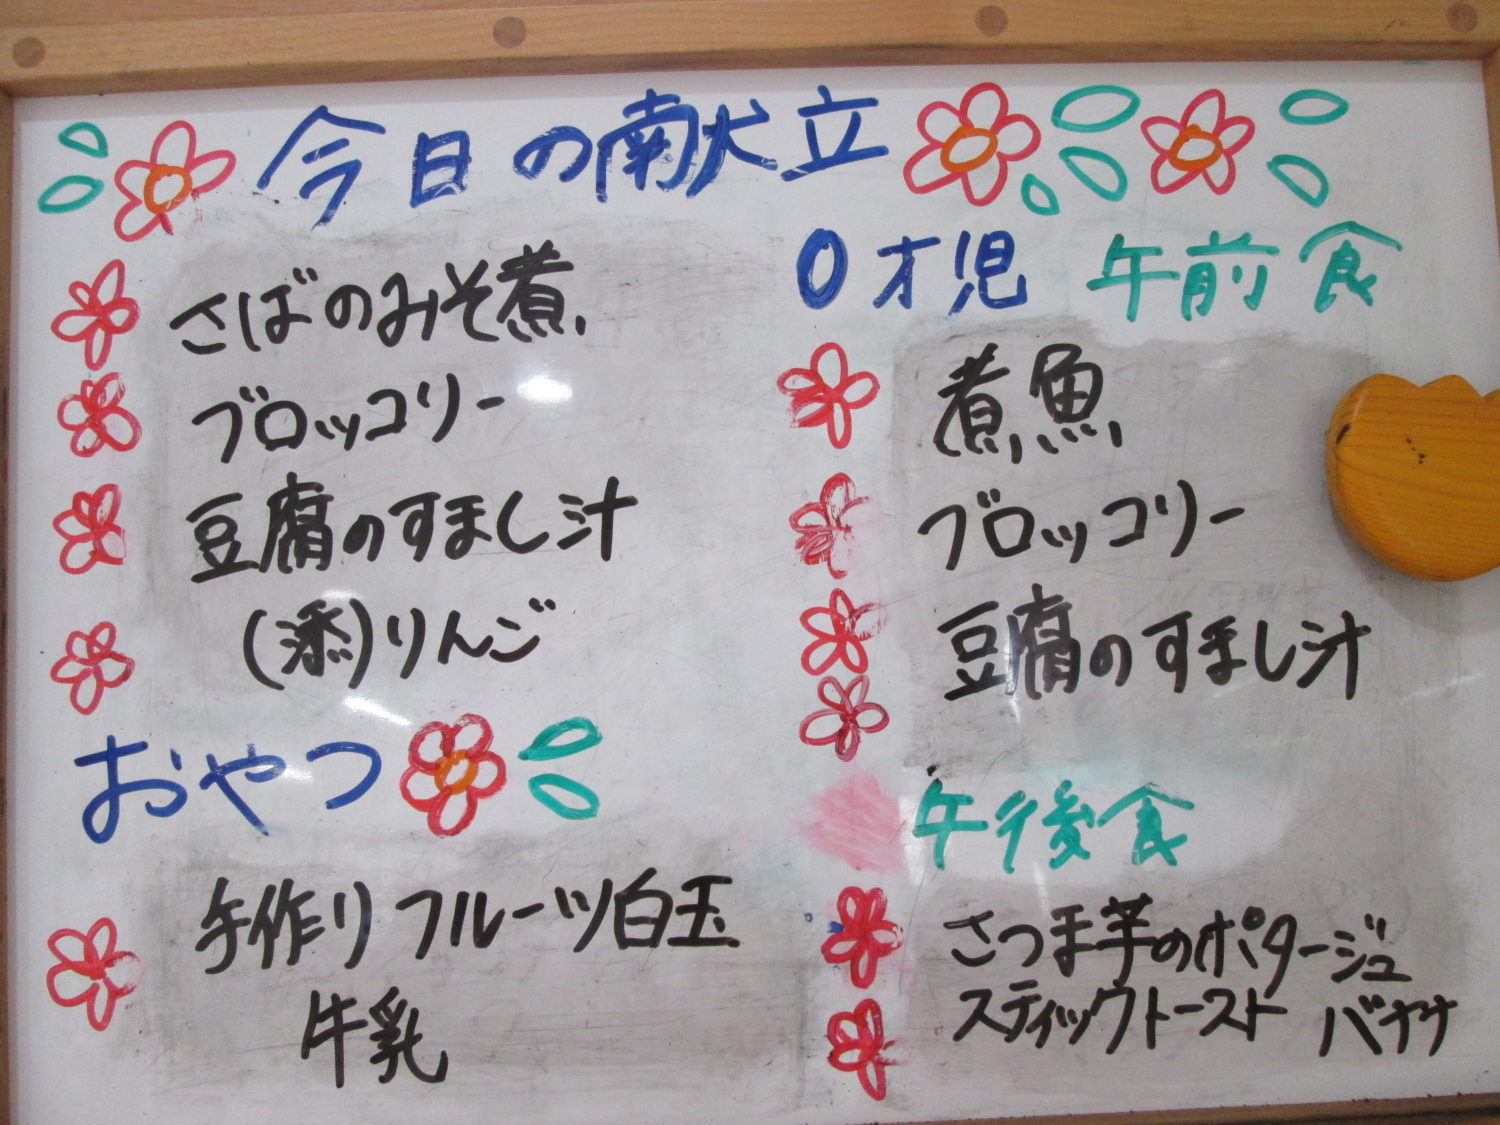 今日の献立
さばのみそ煮
ブロッコリー
豆腐のすまし汁
(添)りんご
おやつ
手作りフルーツ白玉
牛乳
0才児 午前食
煮魚
ブロッコリー
豆腐のすまし汁
午後食
さつま芋のポタージュ
スティックトースト バナナ